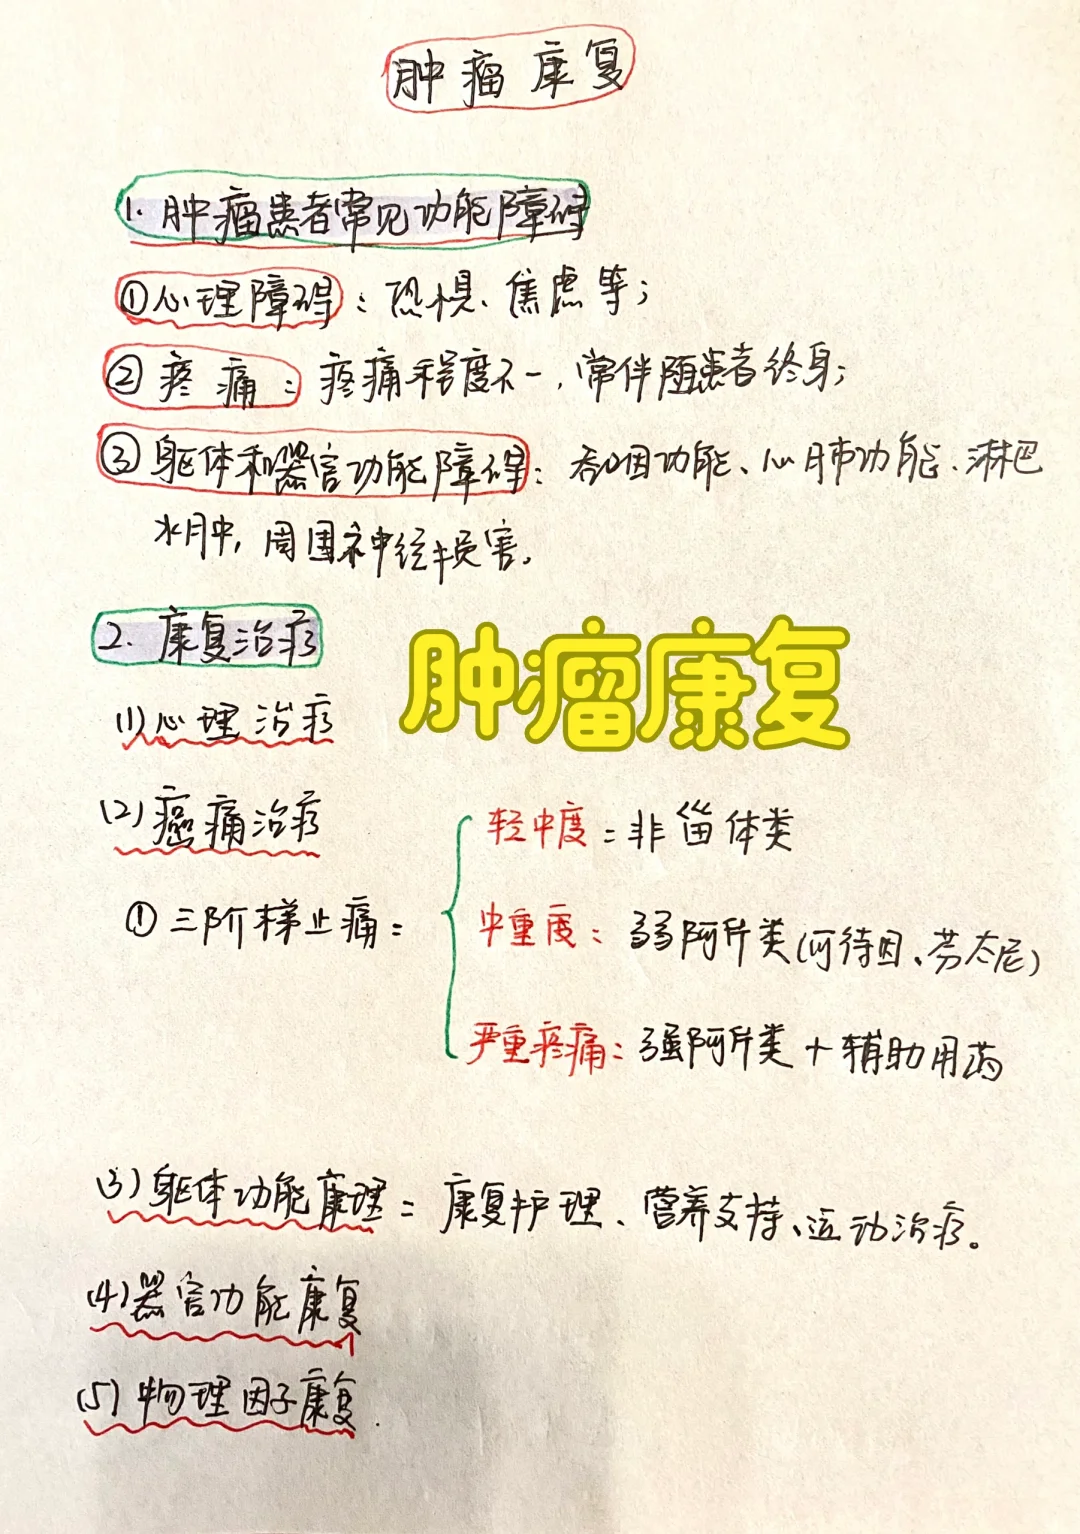 肿瘤康复
1. 肿瘤患者常见功能障碍
①心理障碍：恐惧、焦虑等；
②疼痛：疼痛程度不一，常伴随患者终身；
③躯体和器官功能障碍：吞咽功能、心肺功能、淋巴
水肿，周围神经损害。
2. 康复治疗
肿瘤康复
(1)心理治疗
(2)癌痛治疗
轻中度：非甾体类
①三阶梯止痛：
中重度：弱阿片类(可待因、芬太尼)
严重疼痛：强阿片类+辅助用药
(3)躯体功能康理：康复护理、营养支持、运动治疗。
(4)器官功能康复
(5)物理因子康复.